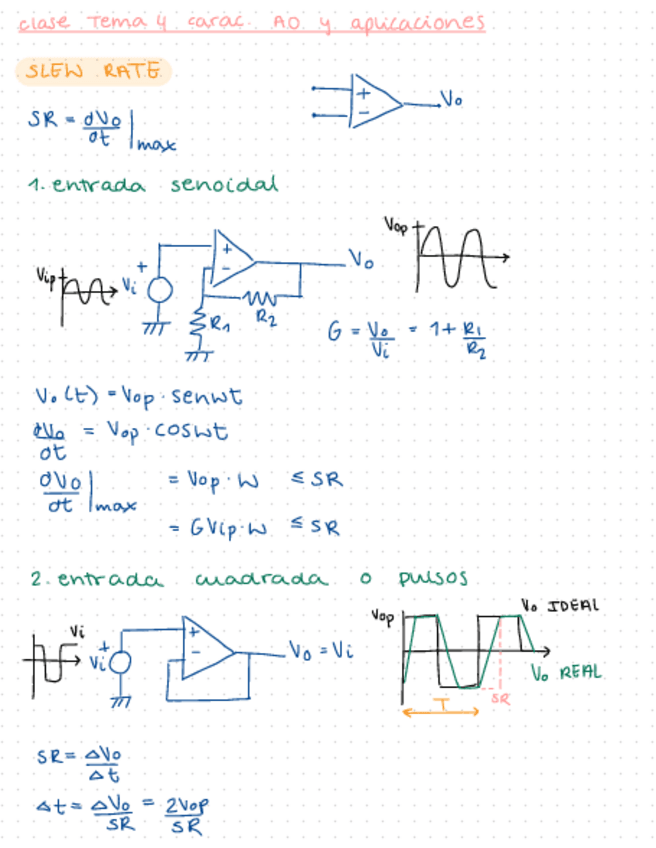 clase Tema 4 carac. A.O. y aplicaciones
SLEW RATE
+
-
Vo
SR = dVo/dt |max
1. entrada senoidal
Vip
Vi
+
+
-
R1
R2
Vo
Vop
G = Vo/Vi = 1 + R1/R2
Vo(t) = Vop · senwt
dVo/dt = Vop · coswt
dVo/dt |max = Vop · w ≤ SR
= GVip·w ≤ SR
2. entrada cuadrada o pulsos
Vi
Vi
+
+
-
Vo = Vi
Vop
Vo IDEAL
Vo REAL
SR
T
SR = ΔVo/Δt
Δt = ΔVo/SR = 2Vop/SR